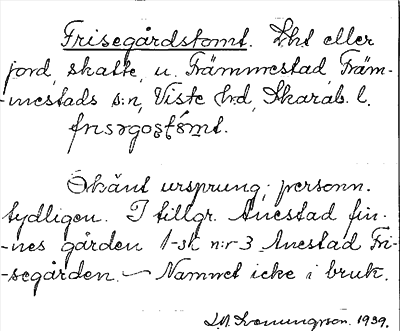 Frisegårdstomt. Lht eller
jord, skatte, u. Främmestad Främ-
-mestads s:n, Viste h:d, Skarab. l.
frisəgoʂtǫmt.
Okänt ursprung; personn.
tydligen. I tillgr. Anestad fin-
-nes gården 1-sk n:r 3 Anestad Fri-
-segården. — Namnet icke i bruk.
1939.